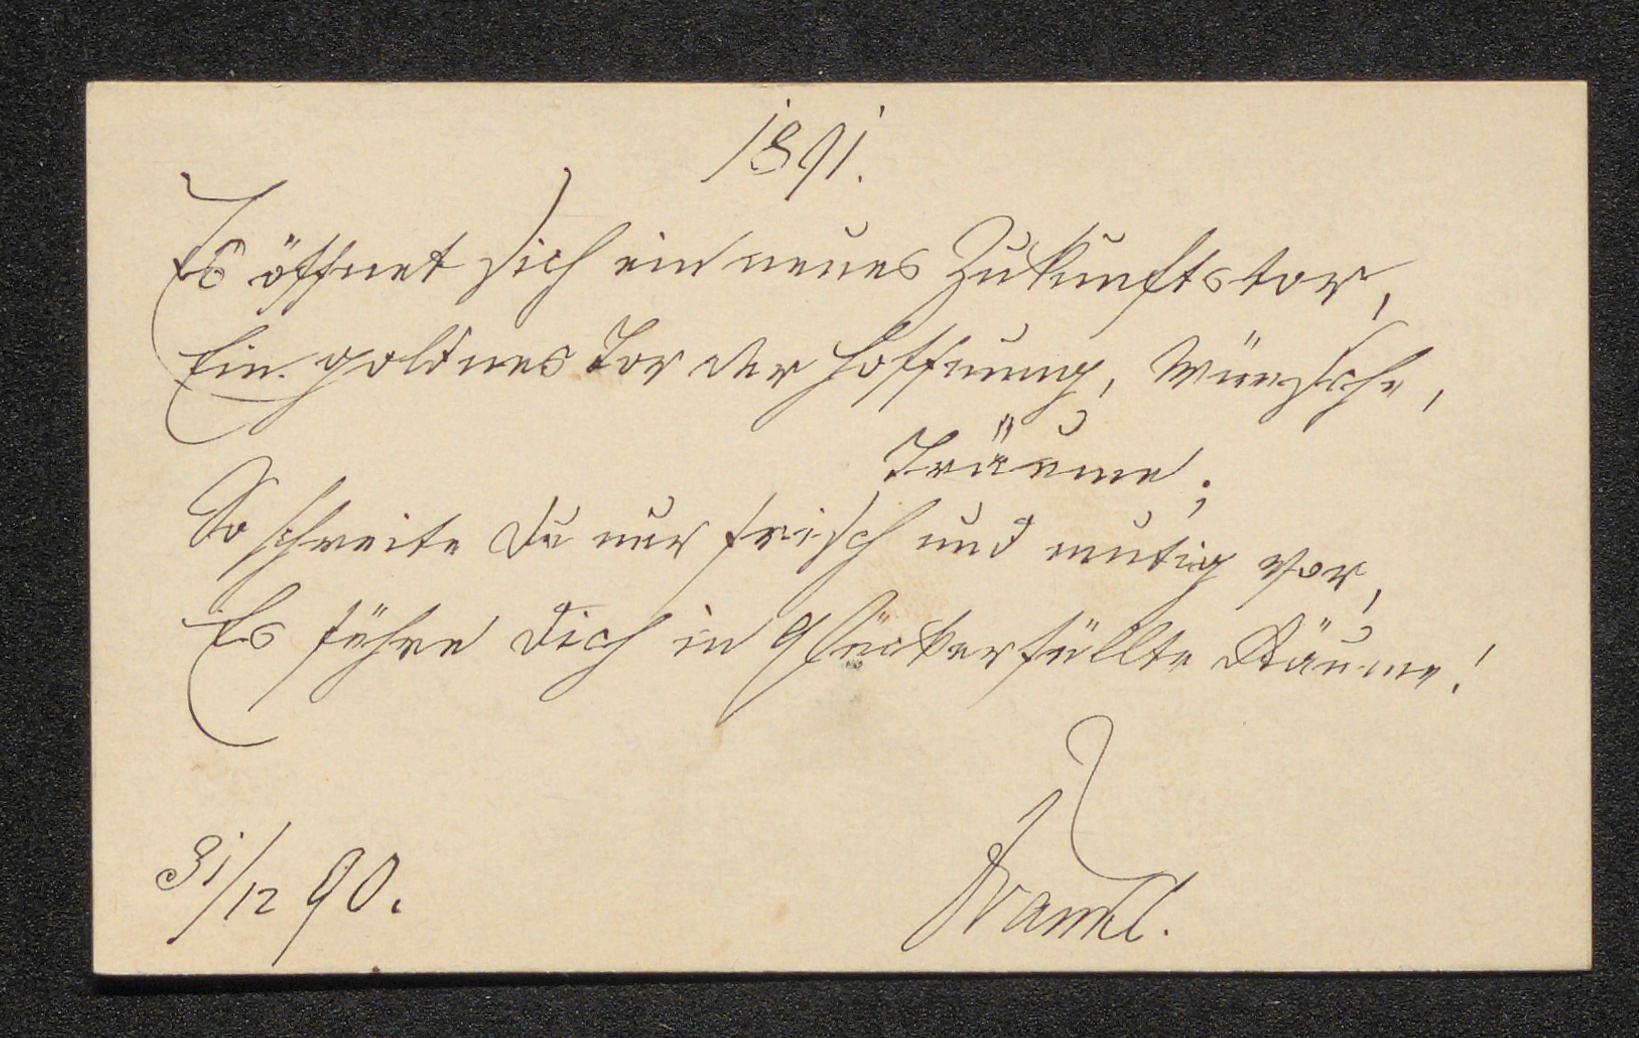 1891.
Es öffnet sich ein neues Zukunftstor,
Ein goldnes Tor der Hoffnung, Wünsche,
Träume;
So schreite Du nur frisch und mutig vor,
Es führe Dich in glückerfüllte Räume!
31/12 90.
Frankl.